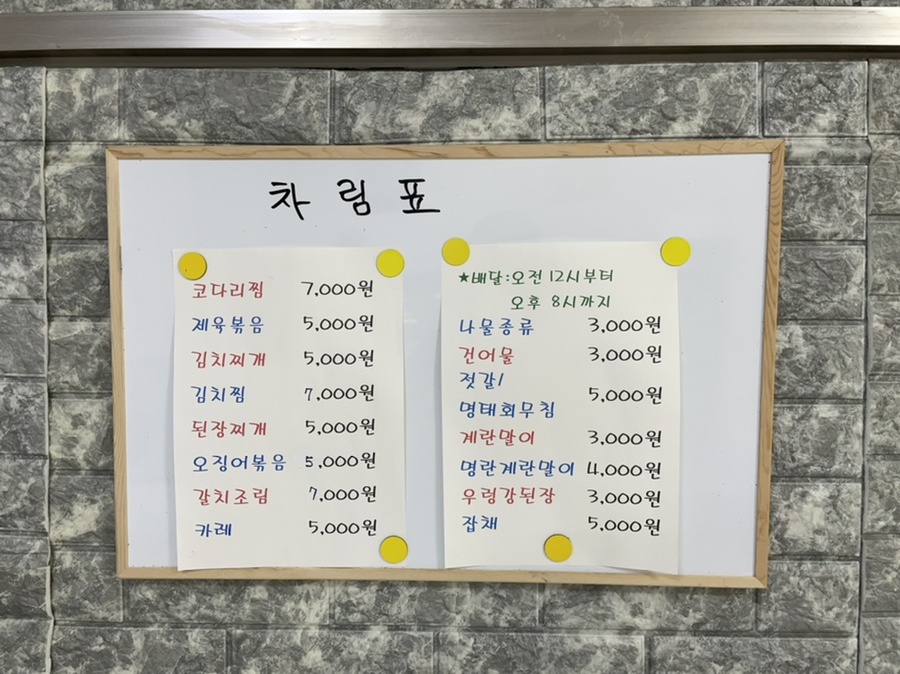 차림표
코다리찜 7,000원
제육볶음 5,000원
김치찌개 5,000원
김치찜 7,000원
된장찌개 5,000원
오징어볶음 5,000원
갈치조림 7,000원
카레 5,000원
★배달:오전 12시부터
오후 8시까지
나물종류 3,000원
건어물 3,000원
젓갈/
명태회무침 5,000원
계란말이 3,000원
명란계란말이 4,000원
우렁강된장 3,000원
잡채 5,000원